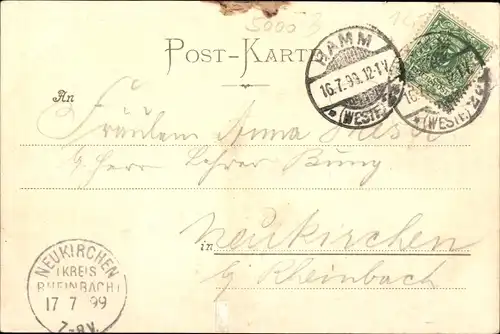 5000
POST-KARTE
HAMM
16.7.99.12-1V.
(WESTF.)
(WESTF.)
An
Fräulein Anna
Herrn Lehrer Bung
Neukirchen
in
b/ Rheinbach
NEUKIRCHEN
(KREIS
RHEINBACH)
17 7 99
7-8V.